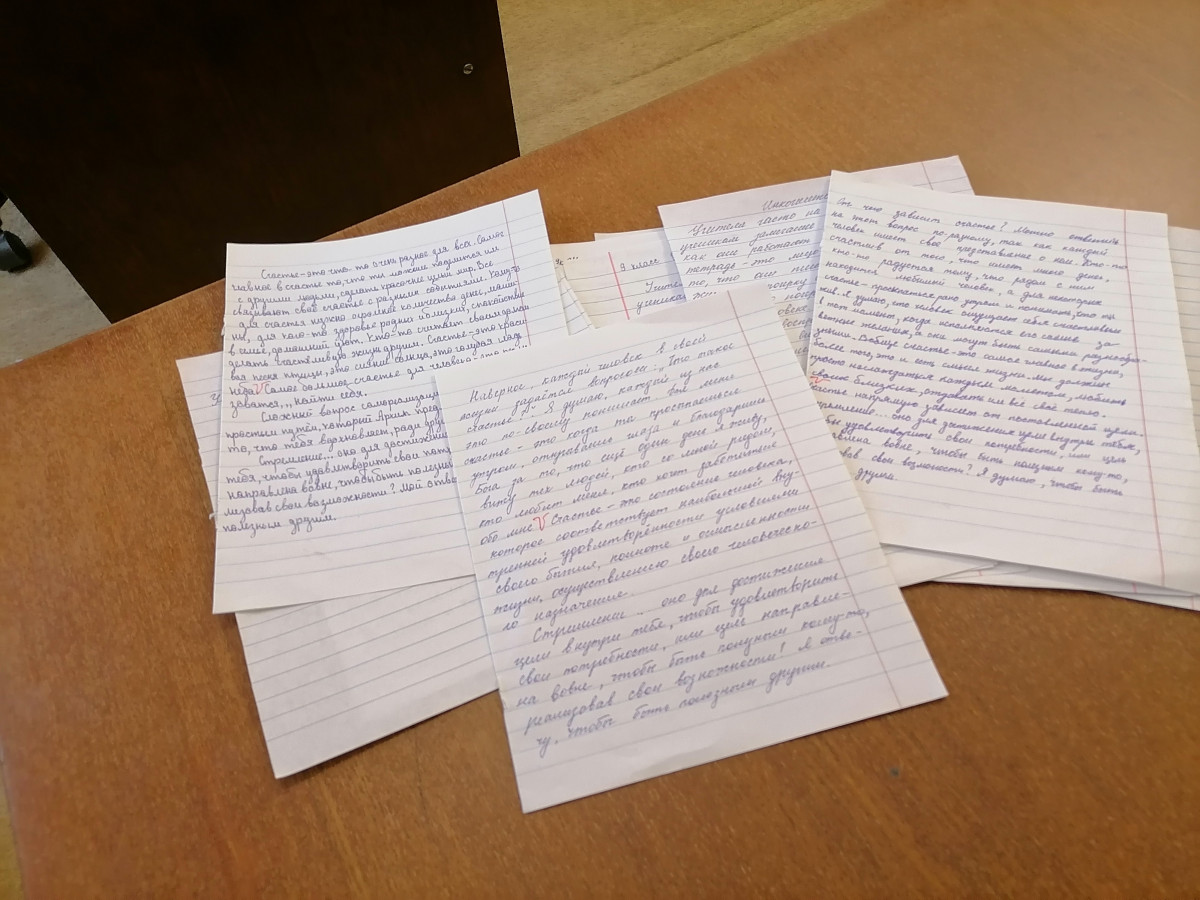 Счастье - это что-то очень разное для всех. Самое
главное в счастье то, что ты можешь поделиться им
с другими людьми, сделать красочнее целый мир. Все
связывают своё счастье с разными событиями. Кому-то
для счастья нужно огромное количество денег, маши-
ны, для кого-то здоровье родных и близких, спокойствие
в семье, домашний уют. Кто-то считает своей целью
делать счастливою жизнь других. Счастье - это краси-
вая песня птицы, это сияние солнца, это голубая гладь
неба. V Самое большое счастье для человека - это
найти себя.
Сложный вопрос самореализации
простым путём, который Ариж пред
то, что тебя вдохновляет, ради друг
Стремление... оно для достижения
тебя, чтобы удовлетворить свои пот
направлена вовне, чтобы быть полезным
лизовав свои возможности? Мой ответ
полезным другим.
Наверное, каждый человек в своей
жизни задаётся вопросом: "Что такое
счастье?" Я думаю, каждый из нас
это по-своему понимает. Для меня
счастье - это когда ты просыпаешься
утром, открываешь глаза и благодаришь
Бога за то, что ещё один день я живу,
вижу тех людей, кто со мной рядом,
кто любит меня, кто хочет заботиться
обо мне. V Счастье - это состояние человека,
которое соответствует наибольшей вну-
тренней удовлетворённости условиями
своего бытия, полноте и осмысленности
жизни, осуществлению своего человеческо-
го назначения.
Стремление... оно для достижения
цели внутри тебя, чтобы удовлетворить
свои потребности, или цель направле-
на вовне, чтобы быть полезным кому-то,
реализовав свои возможности? Я отве-
чу, чтобы быть полезным другим.
9 класс
Учите
ученика
Инкогнито
Учителя часто на
ученикам
как они работают
тетрадь - это
то, что они
От чего зависит счастье? Можно ответить
на этот вопрос по-разному, так как каждый
человек имеет своё представление о нём. Кто-то
счастлив от того, что имеет много денег,
кто-то радуется тому, что рядом с ним
находится любимый человек, а для некоторых
счастье - проснуться рано утром и понимать, что ты
жив. Я думаю, что человек ощущает себя счастливым
в тот момент, когда исполняются его самые за-
ветные желания, а они могут быть самыми разнообра-
зными. Вообще счастье - это самое главное в жизни,
более того, это и есть смысл жизни. Мы должны
просто наслаждаться каждым моментом, любить
своих близких, отдавать им всё своё тепло.
V Счастье напрямую зависит от поставленной цели.
Стремление... оно для достижения цели внутри тебя,
бы удовлетворить свои потребности, или цель
авлена вовне, чтобы быть полезным кому-то,
вав свои возможности? Я думаю, чтобы быть
другим.